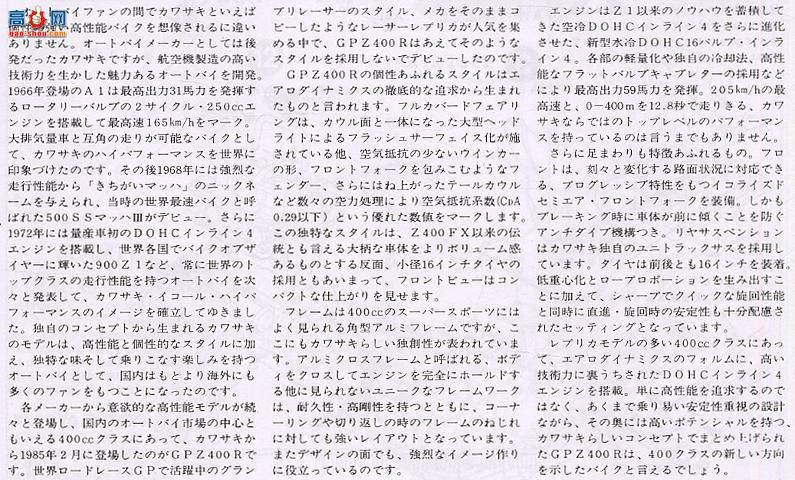 高达网
バイファンの間でカワサキといえば
高性能バイクを想像されるに違い
ありません。オートバイメーカーとしては後
発だったカワサキですが、航空機製造の高い
技術力を生かした魅力あるオートバイを開発。
1966年登場のA1は最高出力31馬力を発揮す
るロータリーバルブの2サイクル・250ccエ
ンジンを搭載して最高速165km/hをマーク。
大排気量車と互角の走りが可能なバイクとし
て、カワサキのハイパフォーマンスを世界に
印象づけたのです。その後1968年には強烈な
走行性能から「きちがいマッハ」のニックネ
ームを与えられ、当時の世界最速バイクと呼
ばれた500SSマッハⅢがデビュー。さらに
1972年には量産車初のDOHCインライン4
エンジンを搭載し、世界各国でバイクオブザ
イヤーに輝いた900Z1など、常に世界のト
ップクラスの走行性能を持つオートバイを次
々と発表して、カワサキ・イコール・ハイパ
フォーマンスのイメージを確立してゆきまし
た。独自のコンセプトから生まれるカワサキ
のモデルは、高性能と個性的なスタイルに加
え、独特な味そして乗りこなす楽しみを持つ
オートバイとして、国内はもとより海外にも
多くのファンをもつことになったのです。
各メーカーから意欲的な高性能モデルが続
々と登場し、国内のオートバイ市場の中心と
もいえる400ccクラスにあって、カワサキか
ら1985年2月に登場したのがGPZ400Rで
す。世界ロードレースGPで活躍中のグラン
プリレーサーのスタイル、メカをそのままコ
ピーしたようなレーサーレプリカが人気を集
める中で、GPZ400Rはあえてそのような
スタイルを採用しないでデビューしたのです。
GPZ400Rの個性あふれるスタイルはエ
アロダイナミクスの徹底的な追求から生まれ
たものと言われます。フルカバードフェアリ
ングは、カウル面と一体になった大型ヘッド
ライトによるフラッシュサーフェイス化が施
されている他、空気抵抗の少ないウインカー
の形、フロントフォークを包みこむようなフ
ェンダー、さらにはね上がったテールカウル
など数々の空力処理により空気抵抗係数(CDA
0.29以下)という優れた数値をマークします。
この独特なスタイルは、Z400FX以来の伝
統とも言える大柄な車体をよりボリューム感
あるものとする反面、小径16インチタイヤの
採用ともあいまって、フロントビューはコン
パクトな仕上がりを見せます。
フレームは400ccのスーパースポーツには
よく見られる角型アルミフレームですが、こ
こにもカワサキらしい独創性が表われていま
す。アルミクロスフレームと呼ばれる、ボデ
ィをクロスしてエンジンを完全にホールドす
る他に見られないユニークなフレームワーク
は、耐久性・高剛性を持つとともに、コーナ
ーリングや切り返しの時のフレームのねじれ
に対しても強いレイアウトとなっています。
またデザインの面でも、強烈なイメージ作り
に役立っているのです。
エンジンはZ1以来のノウハウを蓄積して
きた空冷DOHCインライン4をさらに進化
させた、新型水冷DOHC16バルブ・インラ
イン4。各部の軽量化や独自の冷却法、高性
能なフラットバルブキャブレターの採用など
により最高出力59馬力を発揮。205km/hの最
高速と、0−400mを12.8秒で走りきる、カワ
サキならではのトップレベルのパフォーマン
スを持っているのは言うまでもありません。
さらに足まわりも特徴あふれるもの。フロ
ントは、刻々と変化する路面状況に対応でき
る、プログレッシブ特性をもつイコライズド
セミエア・フロントフォークを装備。しかも
ブレーキング時に車体が前に傾くことを防ぐ
アンチダイブ機構つき。リヤサスペンション
はカワサキ独自のユニトラックサスを採用し
ています。タイヤは前後とも16インチを装着。
低重心化とロープロポーションを生み出すこ
とに加えて、シャープでクイックな旋回性能
と同時に直進・旋回時の安定性も十分配慮さ
れたセッティングとなっています。
レプリカモデルの多い400ccクラスにあっ
て、エアロダイナミクスのフォルムに、高い
技術力に裏うちされたDOHCインライン4
エンジンを搭載。単に高性能を追求するので
はなく、あくまで乗り易い安定性重視の設計
ながら、その奥には高いポテンシャルを持つ、
カワサキらしいコンセプトでまとめ上げられ
たGPZ400Rは、400クラスの新しい方向
を示したバイクと言えるでしょう。